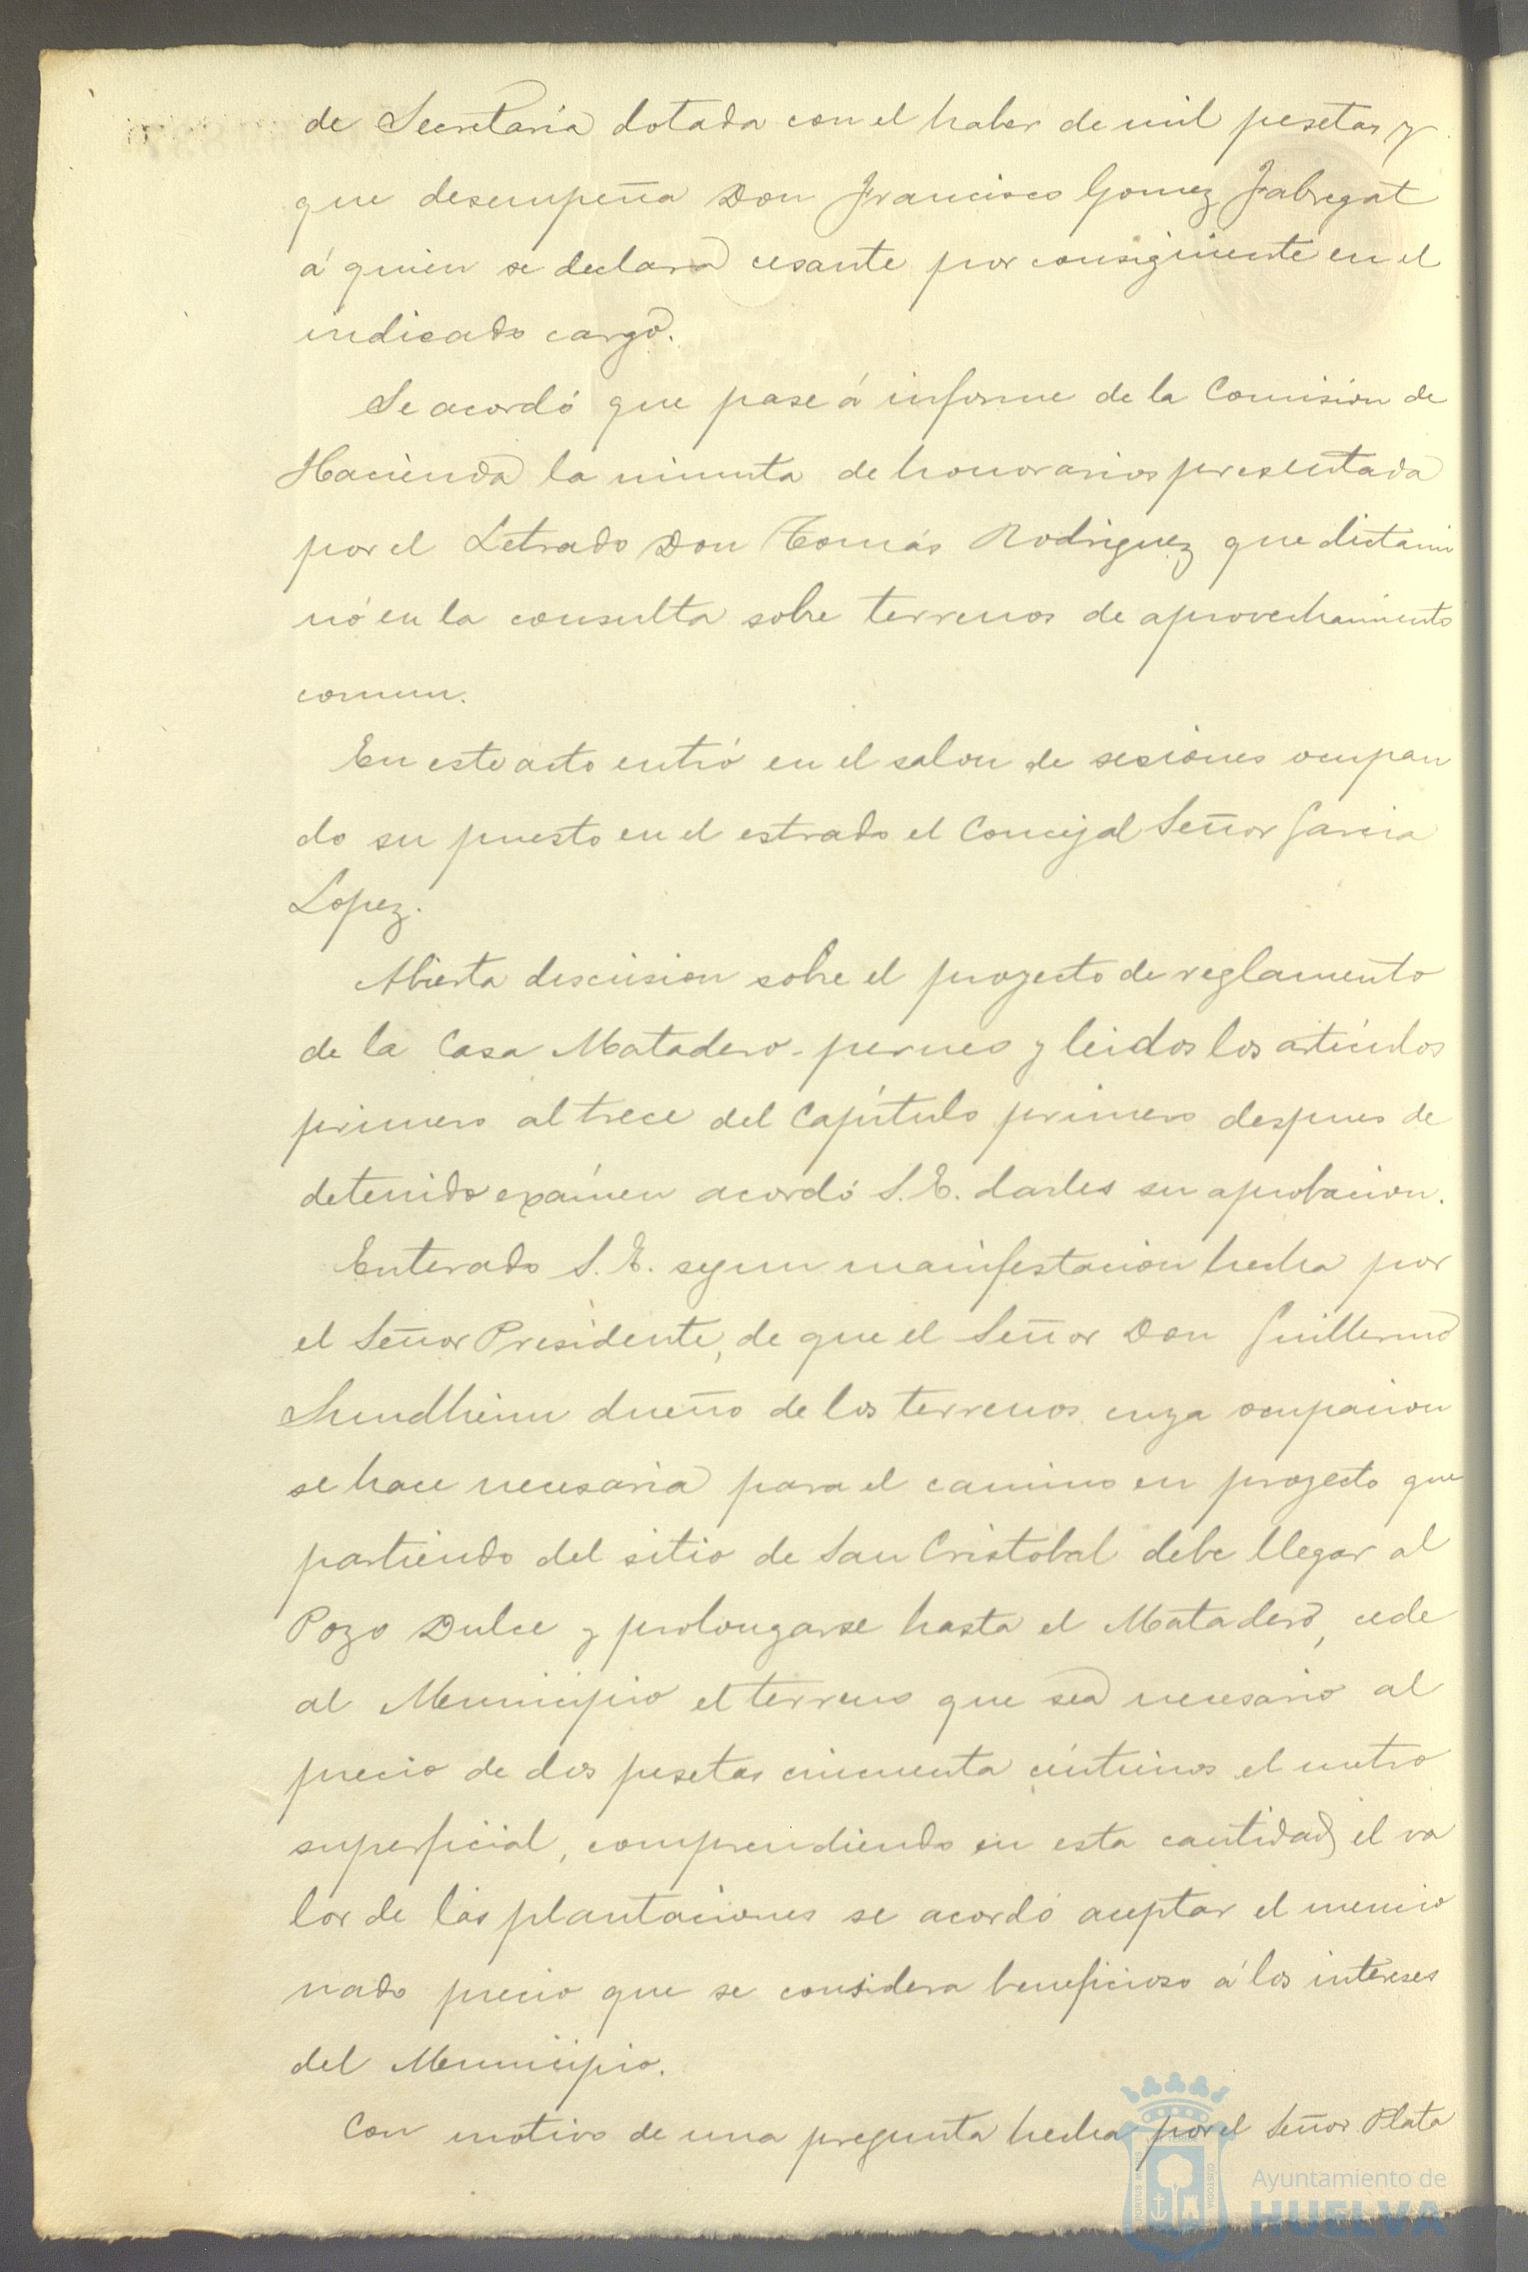 de Secretaria dotada con el haber de mil pesetas y
que desempeña Don Francisco Gomez Fabregat
á quien se declara cesante por consiguiente en el
indicado cargo.
Se acordó que pase á informe de la Comision de
Hacienda la minuta de honorarios presentada
por el Letrado Don Tomás Rodriguez que dictami
nó en la consulta sobre terrenos de aprovechamiento
comun.
En este acto entró en el salon de sesiones ocupan
do su puesto en el estrado el Concejal Señor Garcia
Lopez.
Abierta discusion sobre el proyecto de reglamento
de la Casa Matadero- perneo y leidos los articulos
primero al trece del Capítulo primero despues de
detenido exámen acordó S.E. darles su aprobacion.
Enterado S.E. segun manifestacion hecha por
el Señor Presidente, de que el Señor Don Guillermo
Sundheim dueño de los terrenos cuya ocupacion
se hace necesaria para el camino en proyecto que
partiendo del sitio de San Cristobal debe llegar al
Pozo Dulce y prolongarse hasta el Matadero, cede
al Municipio el terreno que sea necesario al
precio de dos pesetas cincuenta céntimos el metro
superficial, comprendiendo en esta cantidad el va
lor de las plantaciones se acordó aceptar el mencio
nado precio que se considera beneficioso á los intereses
del Municipio.
Con motivo de una pregunta hecha por el Señor Plata
Ayuntamiento de
HUELVA